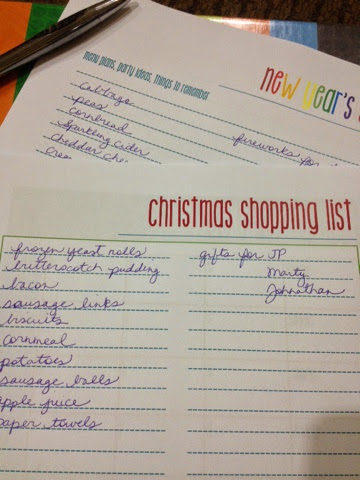 new year's
menu plans, party ideas, things to remember
cabbage
peas
cornbread
sparkling cider
cheddar
fireworks
christmas shopping list
frozen yeast rolls
butterscotch pudding
bacon
sausage links
biscuits
cornmeal
potatoes
sausage balls
apple juice
paper towels
gifts for JP
Marty
Johnathan